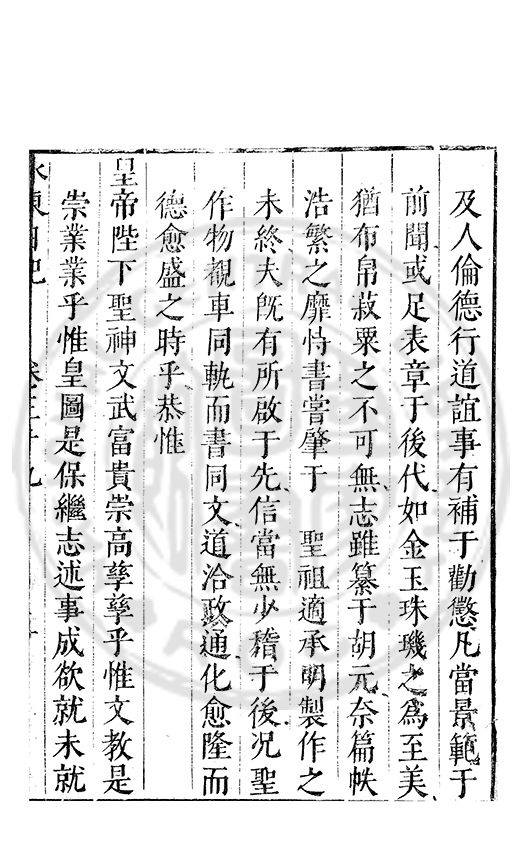 及人倫德行道誼事有補于勸懲凡當景範于
前聞或足表章于後代如金玉珠璣之為至美
猶布帛菽粟之不可無志雖纂于胡元奈篇帙
浩繁之靡恃書嘗肇于　聖祖適承明製作之
未終夫旣有所啟于先信當無少稽于後况聖
作物覩車同軌而書同文道洽政通化愈隆而
德愈盛之時乎恭惟
皇帝陛下聖神文武富貴崇高孳孳乎惟文教是
崇業業乎惟皇圖是保繼志述事成欲就未就
水東日記　卷三十九